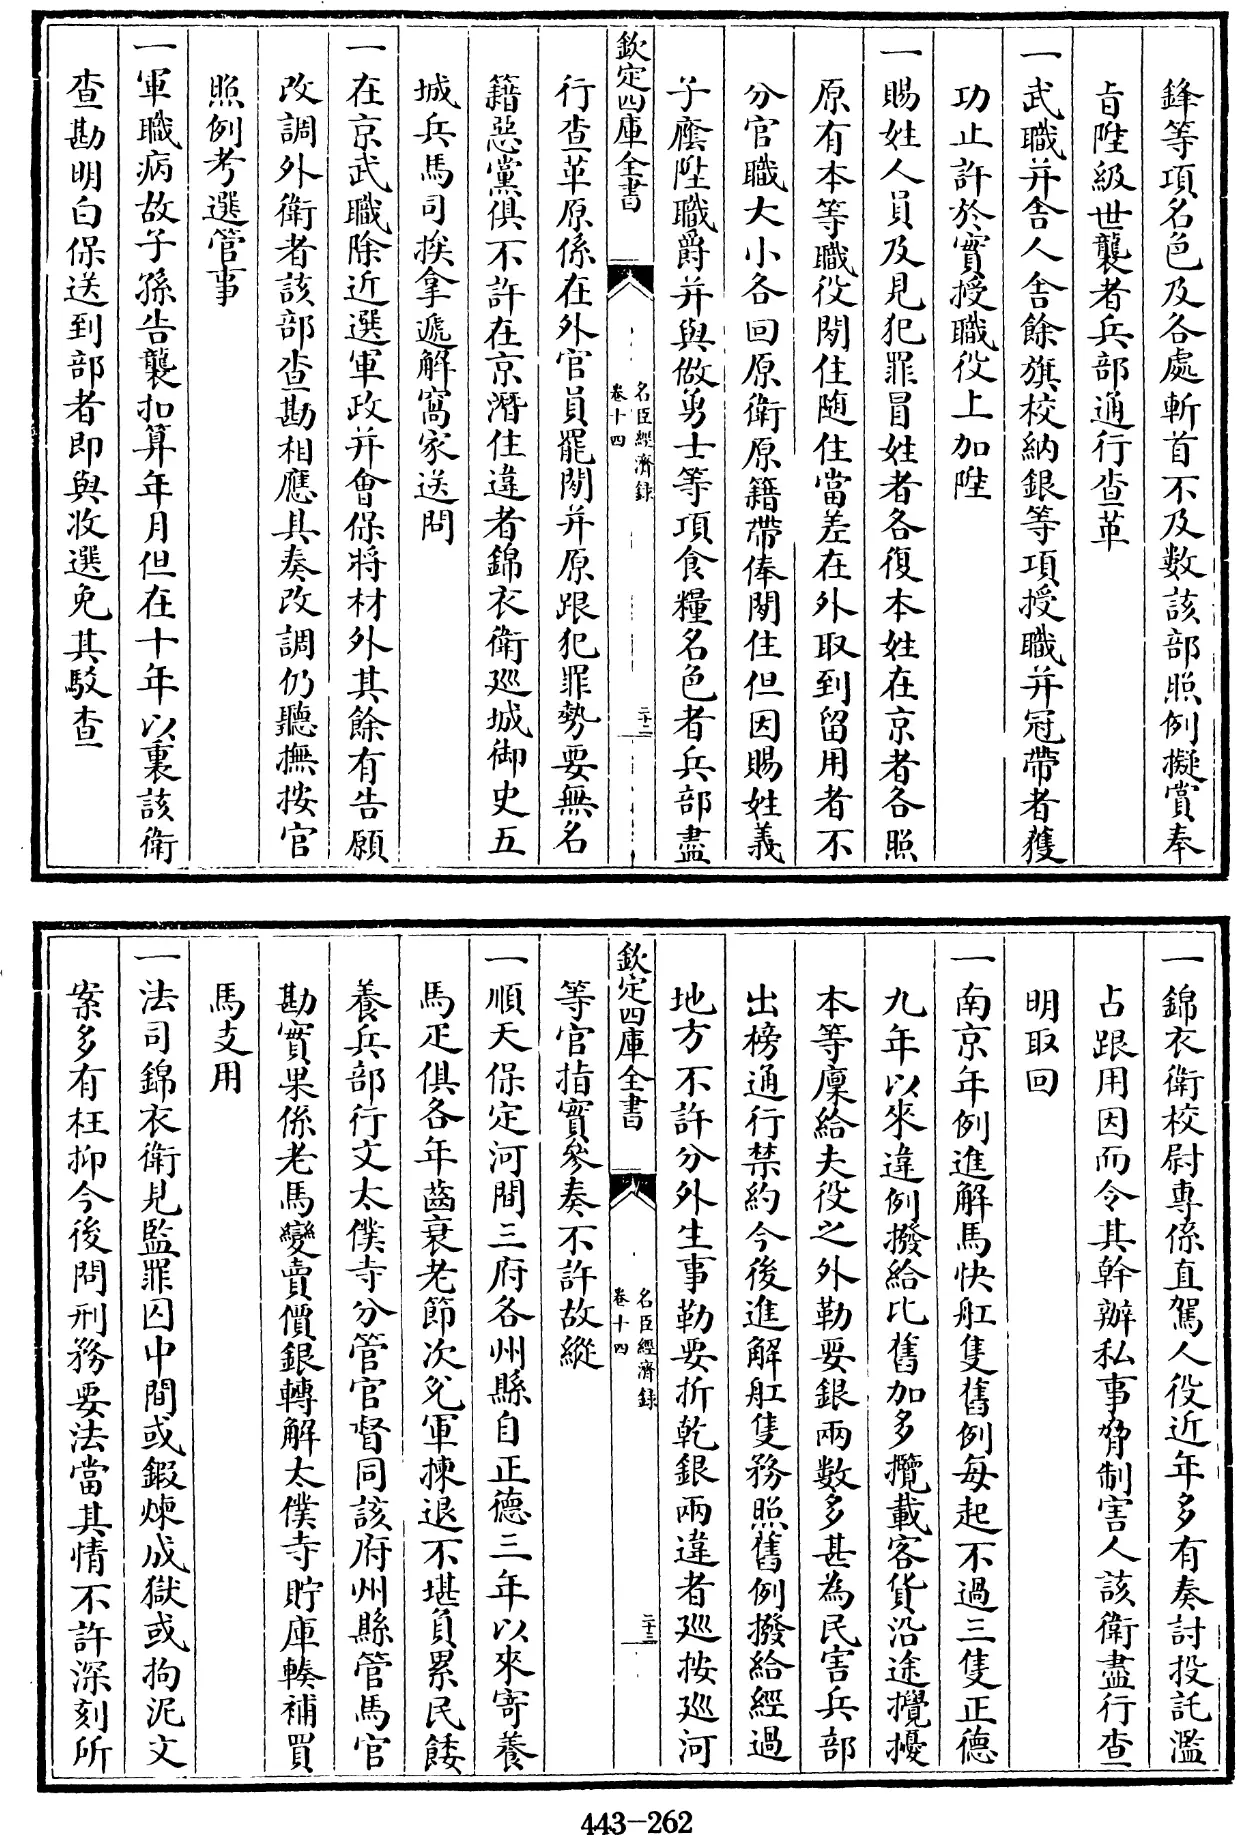 鋒等項名色及各處斬首不及數該部照例擬賞奉
旨陞級世襲者兵部通行查革
一武職并舍人舍餘旗校納銀等項授職并冠帶者獲
功止許於實授職役上加陞
一賜姓人員及見犯罪冒姓者各復本姓在京者各照
原有本等職役閑住随住當差在外取到留用者不
分官職大小各回原衛原籍帶俸閑住但因賜姓義
子廕陞職爵并與做勇士等項食糧名色者兵部盡
欽定四庫全書
名臣經濟録
卷十四
二十二
行查革原係在外官員罷閑并原跟犯罪勢要無名
籍惡黨俱不許在京潛住違者錦衣衛廵城御史五
城兵馬司挨拿遞解窩家送問
一在京武職除近選軍政并會保將材外其餘有告願
改調外衛者該部查勘相應具奏改調仍聽撫按官
照例考選管事
一軍職病故子孫告襲扣算年月但在十年以裏該衛
查勘明白保送到部者即與收選免其駁查
一錦衣衛校尉專係直駕人役近年多有奏討投託濫
占跟用因而令其幹辦私事脅制害人該衛盡行查
明取回
一南京年例進解馬快舡隻舊例每起不過三隻正德
九年以來違例撥給比舊加多攬載客貨沿途攪擾
本等廩給夫役之外勒要銀兩數多甚為民害兵部
出榜通行禁約今後進解舡隻務照舊例撥給經過
地方不許分外生事勒要折乾銀兩違者廵按廵河
欽定四庫全書
名臣經濟録
卷十四
二十三
等官指實參奏不許故縱
一順天保定河間三府各州縣自正德三年以來寄養
馬疋俱各年齒衰老節次兌軍揀退不堪負累民餧
養兵部行文太僕寺分管官督同該府州縣管馬官
勘實果係老馬變賣價銀轉解太僕寺貯庫輳補買
馬支用
一法司錦衣衛見監罪囚中間或鍛煉成獄或拘泥文
案多有枉抑今後問刑務要法當其情不許深刻所
443-262